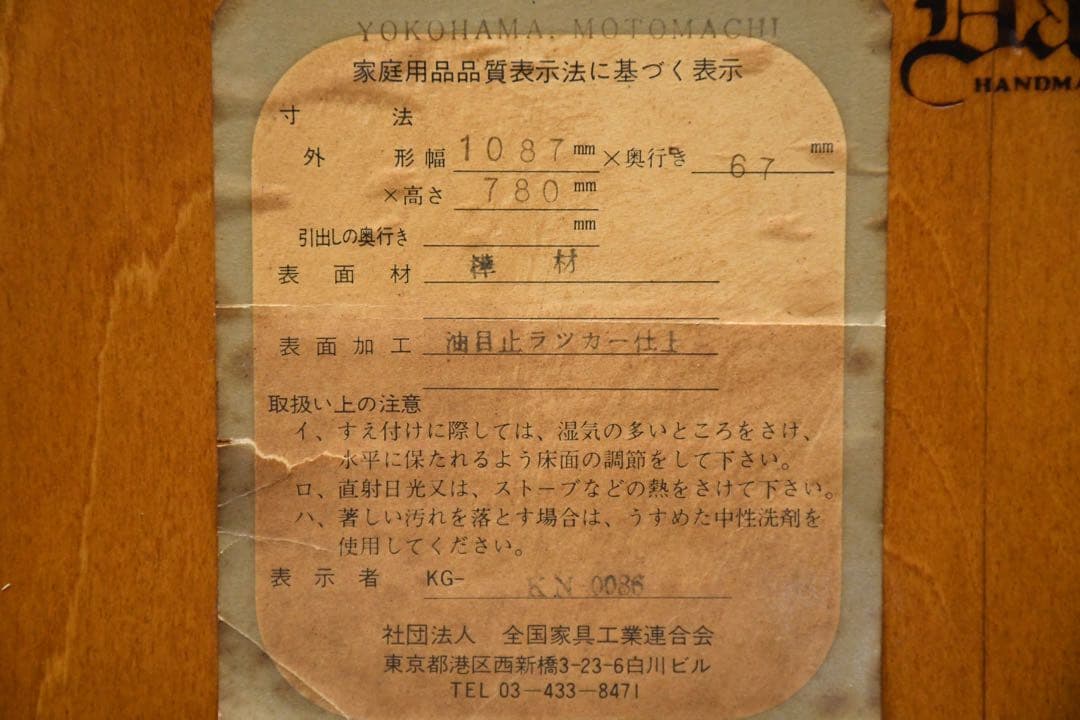 YOKOHAMA, MOTOMACHI
HANDMA
家庭用品品質表示法に基づく表示
寸法
外形 幅 1087mm ×奥行き 67 mm
×高さ 780mm
引出しの奥行き mm
表面材 樺材
表面加工 油目止ラツカー仕上
取扱い上の注意
イ、すえ付けに際しては、湿気の多いところをさけ、
水平に保たれるよう床面の調節をして下さい。
ロ、直射日光又は、ストーブなどの熱をさけて下さい。
ハ、著しい汚れを落とす場合は、うすめた中性洗剤を
使用してください。
表示者 KG- KN-0086
社団法人 全国家具工業連合会
東京都港区西新橋3-23-6白川ビル
TEL 03-433-8471